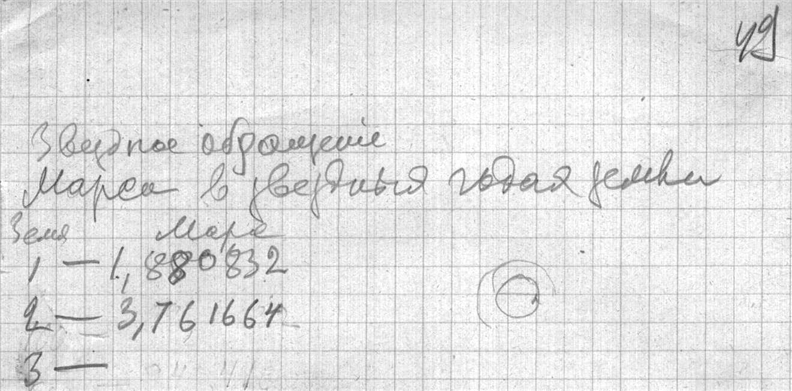 49
Звездное обращение
Марса в звездных годах земли
Земля Марс
1 — 1,880832
2 — 3,761664
3 —